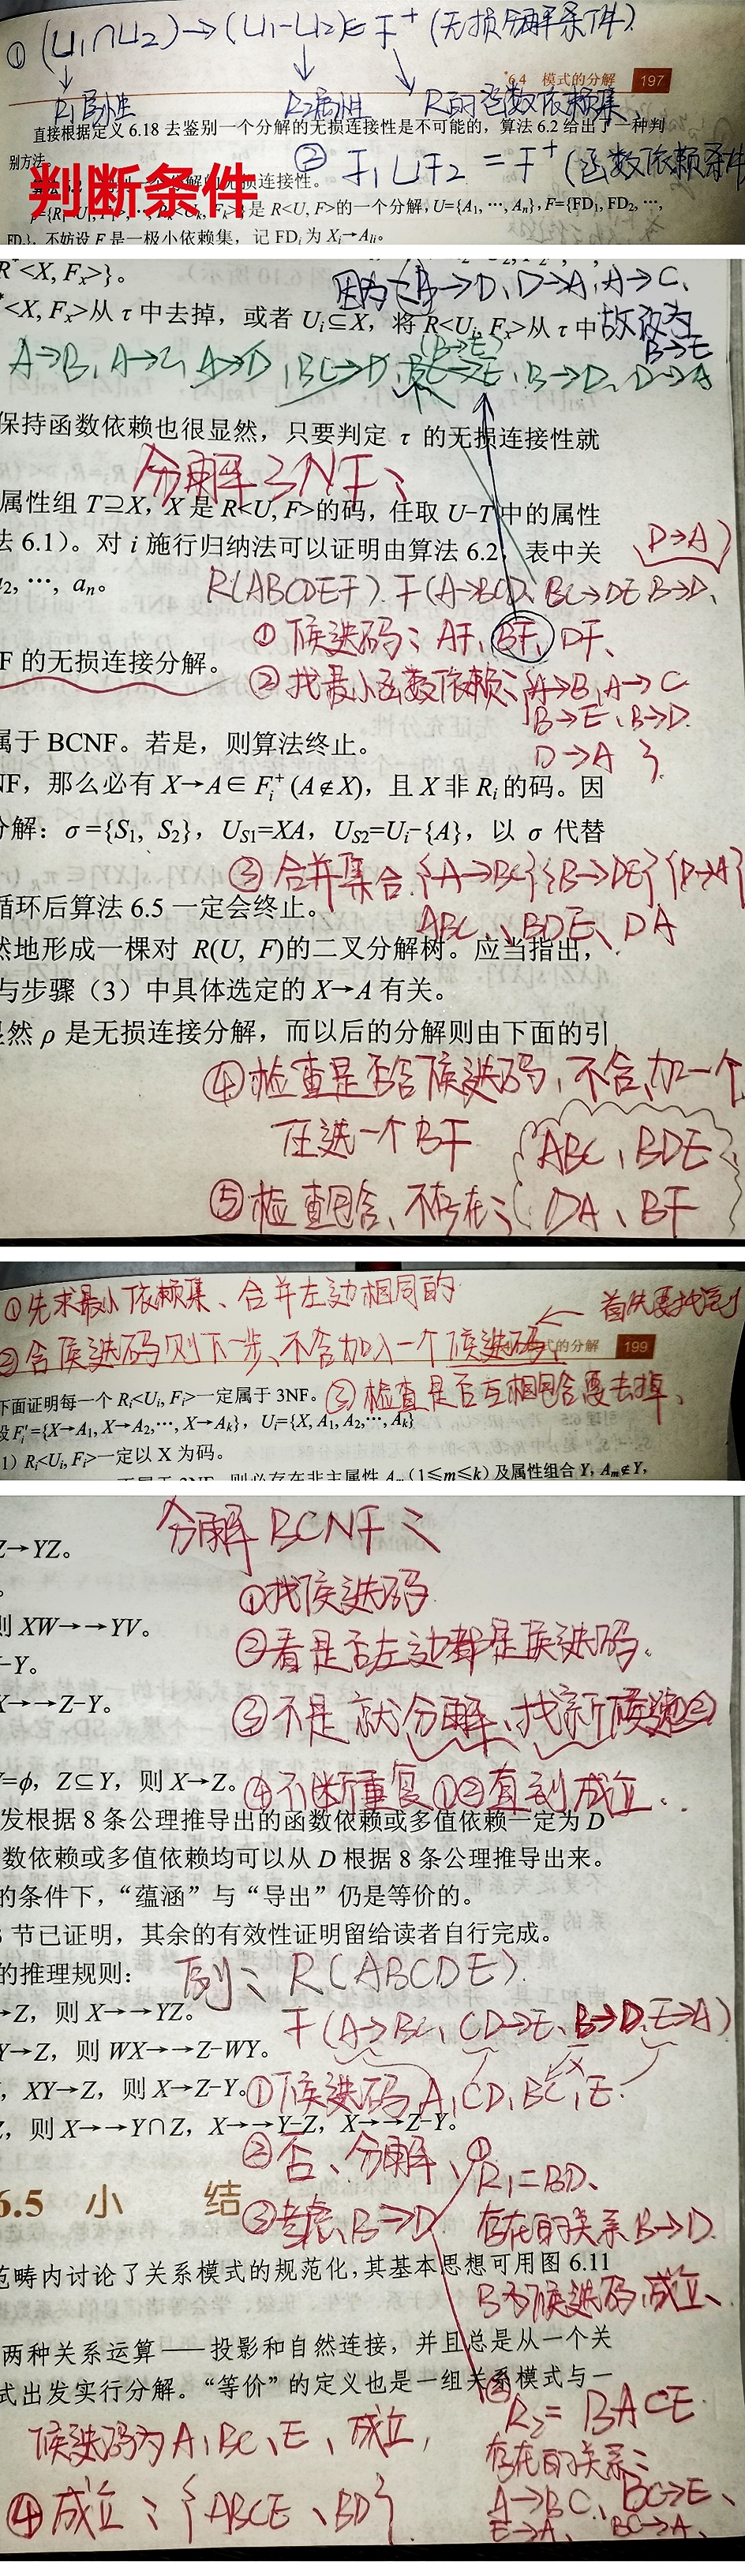 ① (U₁∩U₂)→(U₁-U₂)∈F⁺ (无损分解条件)
6.4 模式的分解 197
R₁属性 R₂属性 R的函数依赖集
直接根据定义 6.18 去鉴别一个分解的无损连接性是不可能的，算法 6.2 给出了一种判
别方法。
② F₁∪F₂ = F⁺ (函数依赖条件
判断条件
无损连接性。
是 R<U, F>的一个分解，U={A₁, …, Aₙ}, F={FD₁, FD₂, …,
FDₚ}，不妨设 F 是一极小依赖集，记 FDᵢ 为 Xᵢ→Aₗᵢ。
R*<X, Fₓ>}。
因为B→D、D→A、A→C、
*<X, Fₓ>从 τ 中去掉，或者 Uᵢ⊆X，将 R<Uᵢ, Fₓ>从 τ 中
故改为
B→E
(B→E)
A→B, A→C, A→D, BC→D, BC→E, B→D, D→A
保持函数依赖也很显然，只要判定 τ 的无损连接性就
分解3NF：
属性组 T⊇X，X 是 R<U, F>的码，任取 U-T 中的属性
法 6.1）。对 i 施行归纳法可以证明由算法 6.2，表中关
D→A)
a₂, …, aₙ。
R(ABCDEF). F(A→BCD、BC→DE B→D、
① 候选码：AF、BF、DF、
F 的无损连接分解。
② 找最小函数依赖：{A→B, A→C
B→E、B→D.
属于 BCNF。若是，则算法终止。
D→A }
NF，那么必有 X→A∈Fᵢ⁺ (A∉X)，且 X 非 Rᵢ 的码。因
分解：σ={S₁, S₂}，U_S1=XA，U_S2=Uᵢ-{A}，以 σ 代替
③ 合并集合.{A→BC}{B→DE}{D→A}
循环后算法 6.5 一定会终止。
ABC、BDE、DA
然地形成一棵对 R(U, F)的二叉分解树。应当指出，
与步骤（3）中具体选定的 X→A 有关。
显然 ρ 是无损连接分解，而以后的分解则由下面的引
④检查是否含候选码，不含加一个
任选一个BF
ABC、BDE
⑤检查包含、不存在：
DA、BF
①先求最小依赖集、合并左边相同的
首先要找到
②含候选码则下一步、不含加入一个候选码、
式的分解 199
下面证明每一个 Rᵢ<Uᵢ, Fᵢ>一定属于 3NF。
③检查是否互相包含要去掉、
设 Fᵢ'={X→A₁, X→A₂,…, X→Aₖ}，Uᵢ={X, A₁, A₂,…, Aₖ}
1）Rᵢ<Uᵢ, Fᵢ>一定以 X 为码。
则必存在非主属性 Aₘ (1≤m≤k) 及属性组合 Y, Aₘ∉Y,
分解BCNF：
Z→YZ。
①找候选码
则 XW→→YV。
②看是否左边都是候选码、
-Y。
X→→Z-Y。
③不是就分解、找新候选②
Y=φ，Z⊆Y，则 X→Z。
④不断重复①②直到成立..
发根据 8 条公理推导出的函数依赖或多值依赖一定为 D
数依赖或多值依赖均可以从 D 根据 8 条公理推导出来。
的条件下，“蕴涵”与“导出”仍是等价的。
节已证明，其余的有效性证明留给读者自行完成。
的推理规则：
例：R(ABCDE).
→Z，则 X→→YZ。
F(A→BC, CD→E、B→D、E→A)
Y→Z，则 WX→→Z-WY。
，XY→Z，则 X→Z-Y。
①候选码 A, CD, BC, E.
Z，则 X→→Y∩Z，X→→Y-Z，X→→Z-Y。
②否、分解、
① R₁=BD、
6.5 小 结
③考虑、B→D
存在的关系 B→D.
范畴内讨论了关系模式的规范化，其基本思想可用图 6.11
B为候选码,成立、
两种关系运算——投影和自然连接，并且总是从一个关
式出发实行分解。“等价”的定义也是一组关系模式与一
② R₂= BACE.
候选码为A, BC、E、成立,
存在的关系：
④成立：{ABCE、BD}
A→BC、BC→E、
E→A、BC→A、